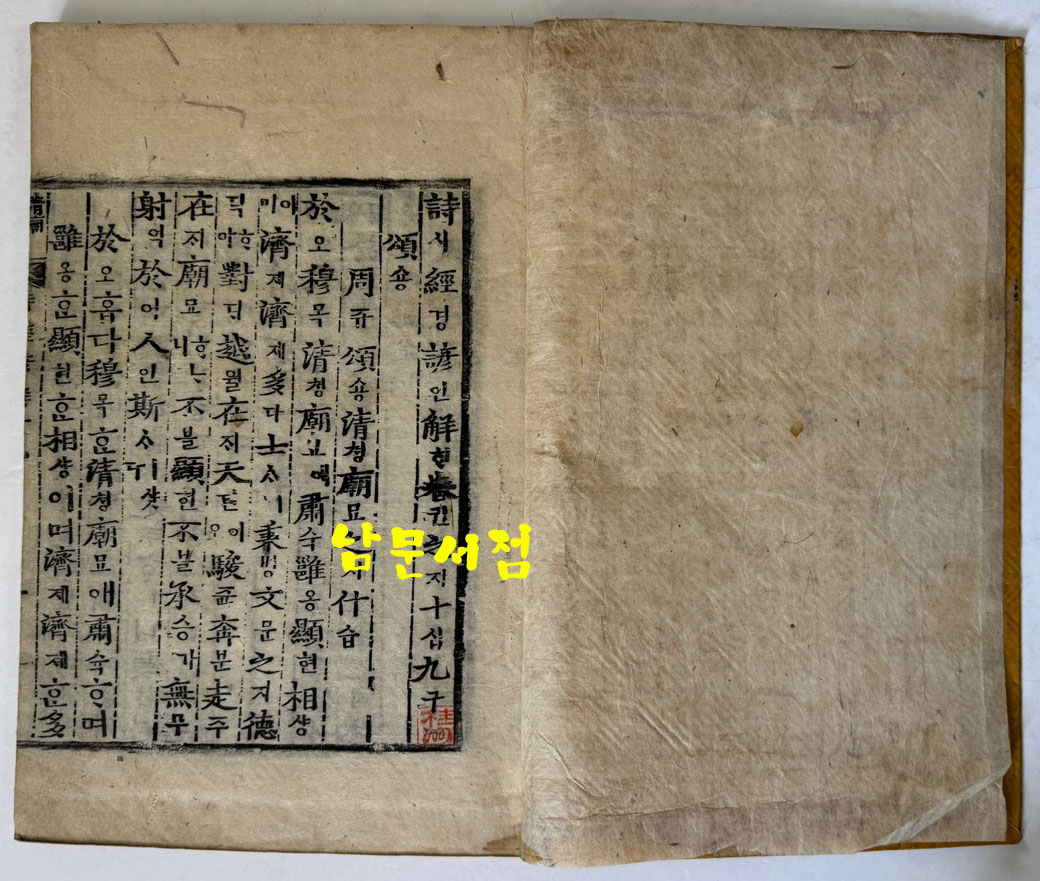 詩시經경諺언解ᄒᆡ卷권之지十십九구
頌숑
周쥬頌숑清쳥廟묘지什습
於오穆목清쳥廟묘애肅슉雝옹顯현相샹
이미濟졔濟졔多다士ᄉᆞㅣ秉병文문之지德
덕ᄒᆞ야對ᄃᆡ越월在ᄌᆡ天텬이오駿쥰奔분走주
在ᄌᆡ廟묘ᄒᆞᄂᆞ니不블顯현不블承승가無무
射역於어人인斯ᄉᆞㅣ샷다
於오홉다穆목ᄒᆞᆫ清쳥廟묘애肅슉ᄒᆞ며
雝옹ᄒᆞᆫ顯현ᄒᆞᆫ相샹이며濟졔濟졔ᄒᆞᆫ多
清廟
남문서점